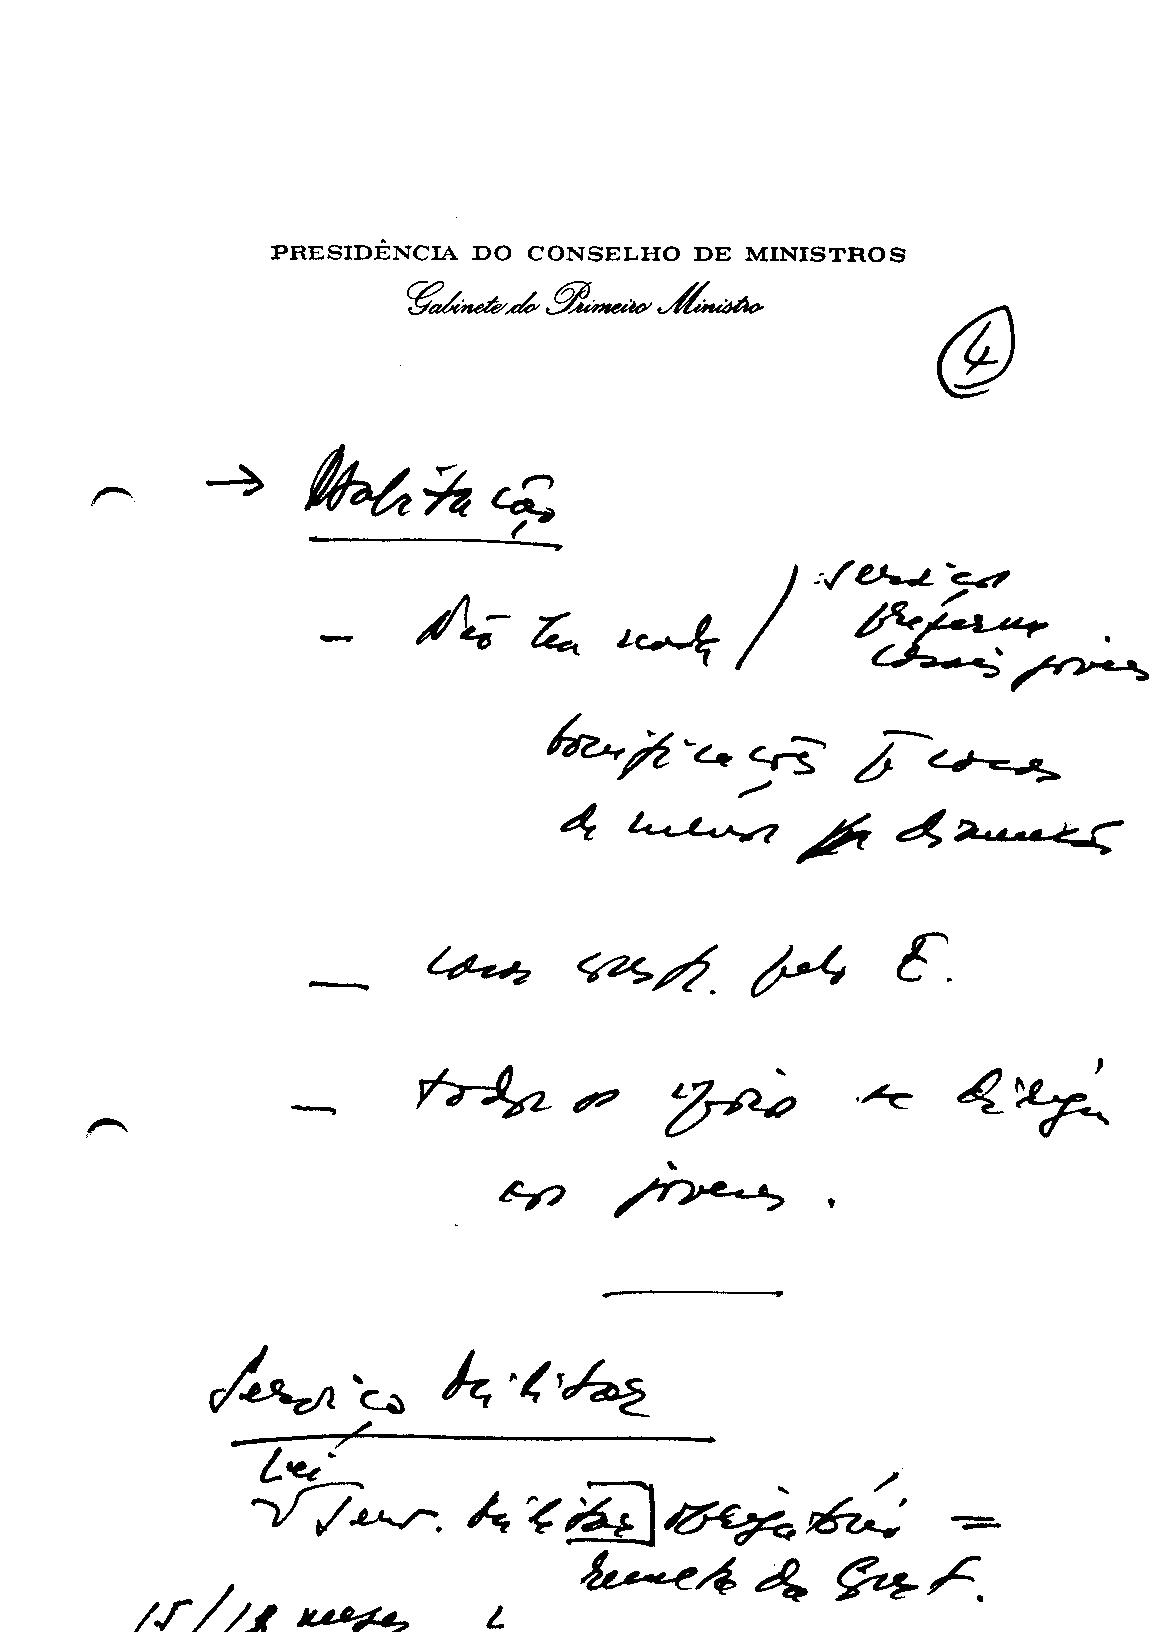 PRESIDÊNCIA DO CONSELHO DE MINISTROS
Gabinete do Primeiro Ministro
4
→ Habitação
- Não tem nada / serviços
casais jovens
bonificações casas
de menor dimensão
- casas pelo E.
- todos os apoios se dirigem
aos jovens.
Serviço Militar
Lei
Serv. Militar obrigatório =
15/18 meses